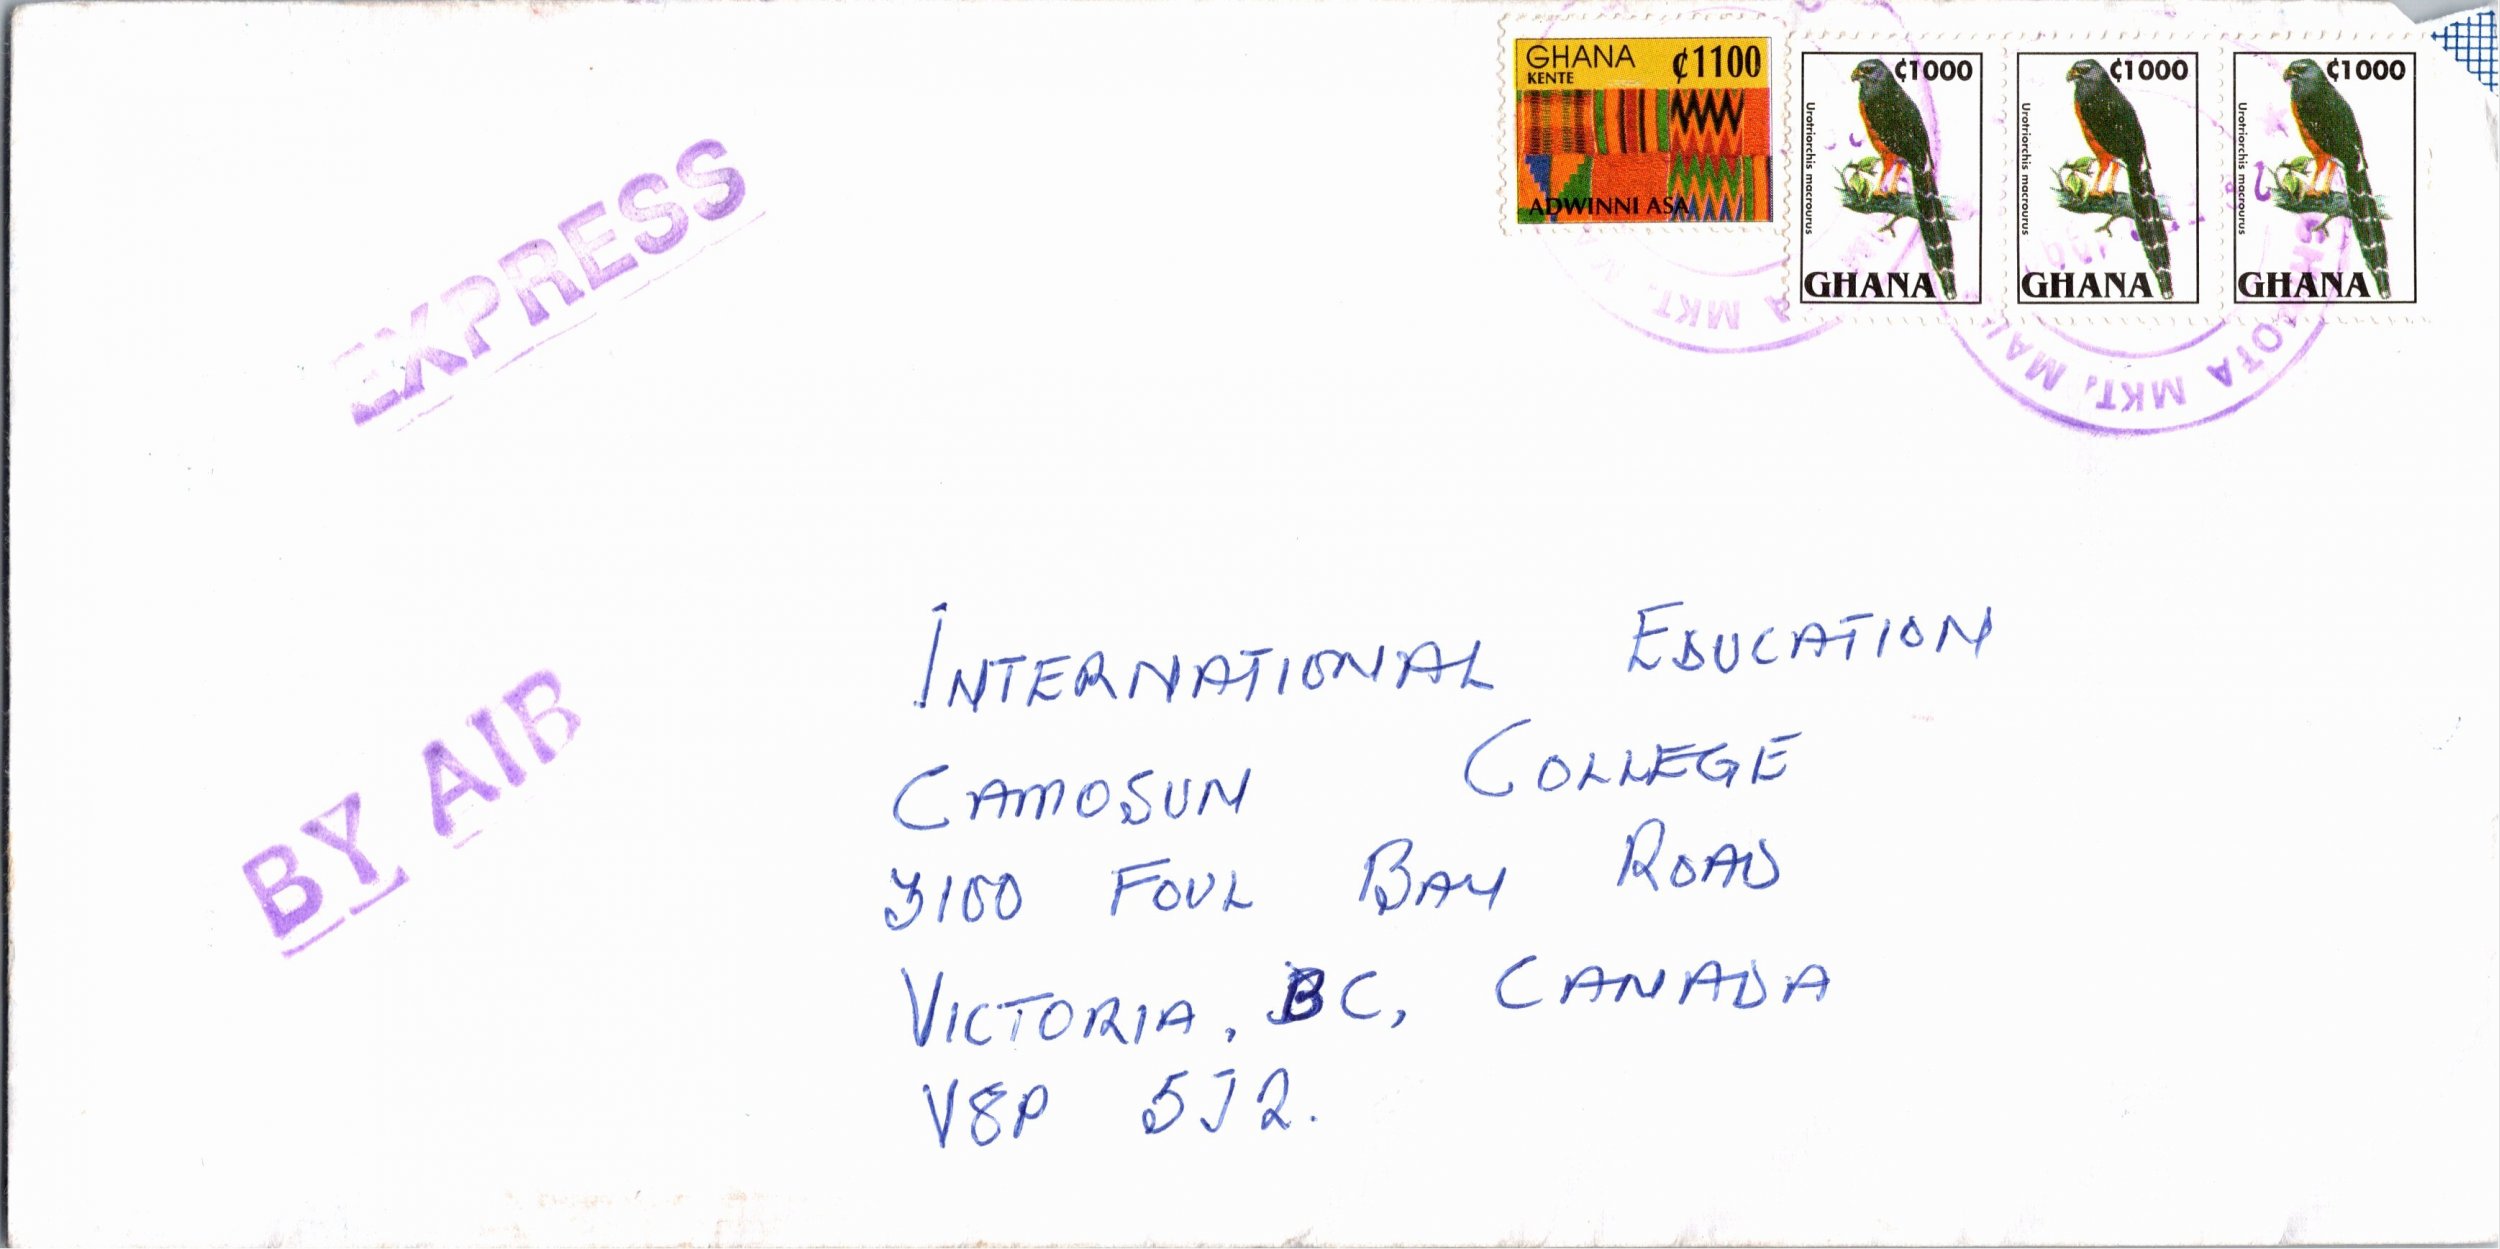 GHANA ¢1100
KENTE
ADWINNI ASA
¢1000
Urotriorchis macrourus
GHANA
¢1000
Urotriorchis macrourus
GHANA
¢1000
Urotriorchis macrourus
GHANA
A MKT.
OTA MKT. MAIL
EXPRESS
BY AIR
INTERNATIONAL EDUCATION
CAMOSUN COLLEGE
3100 FOUL BAY ROAD
VICTORIA, BC, CANADA
V8P 5J2.